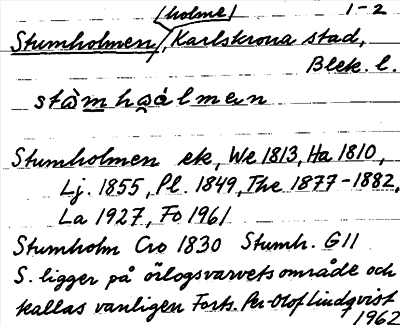 /holme/ 1-2
Stumholmen, Karlskrona stad,
Blek. l.
stᴀ̀m hᴀálmen
Stumholmen ek, We 1813, Ha 1810,
Lj. 1855, Pl. 1849, The 1877-1882,
La 1927, Fo 1961
Stumholm Cro 1830 Stumh. G11
S. ligger på örlogsvarvets område och
kallas vanligen Forts. Per-Olof Lindqvist
1962